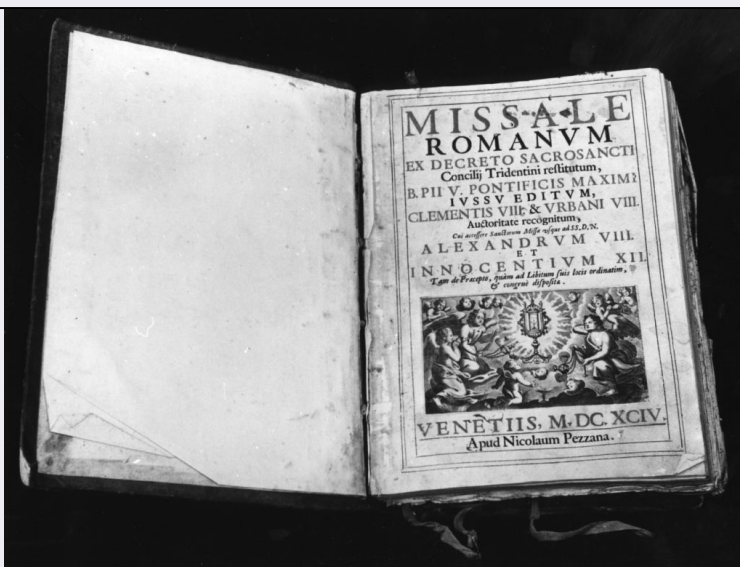 MISSALE
ROMANVM
EX DECRETO SACROSANCTI
Concilij Tridentini restitutum,
B. PII V. PONTIFICIS MAXIMI
IVSSV EDITVM,
CLEMENTIS VIII. & VRBANI VIII.
Auctoritate recognitum,
Cui accessere Sanctorum Missæ usque ad SS.D.N.
ALEXANDRVM VIII.
ET
INNOCENTIVM XII.
Tam de Præcepto, quàm ad Libitum suis locis ordinatim,
& congruè disposita.
VENETIIS, M.DC.XCIV.
Apud Nicolaum Pezzana.